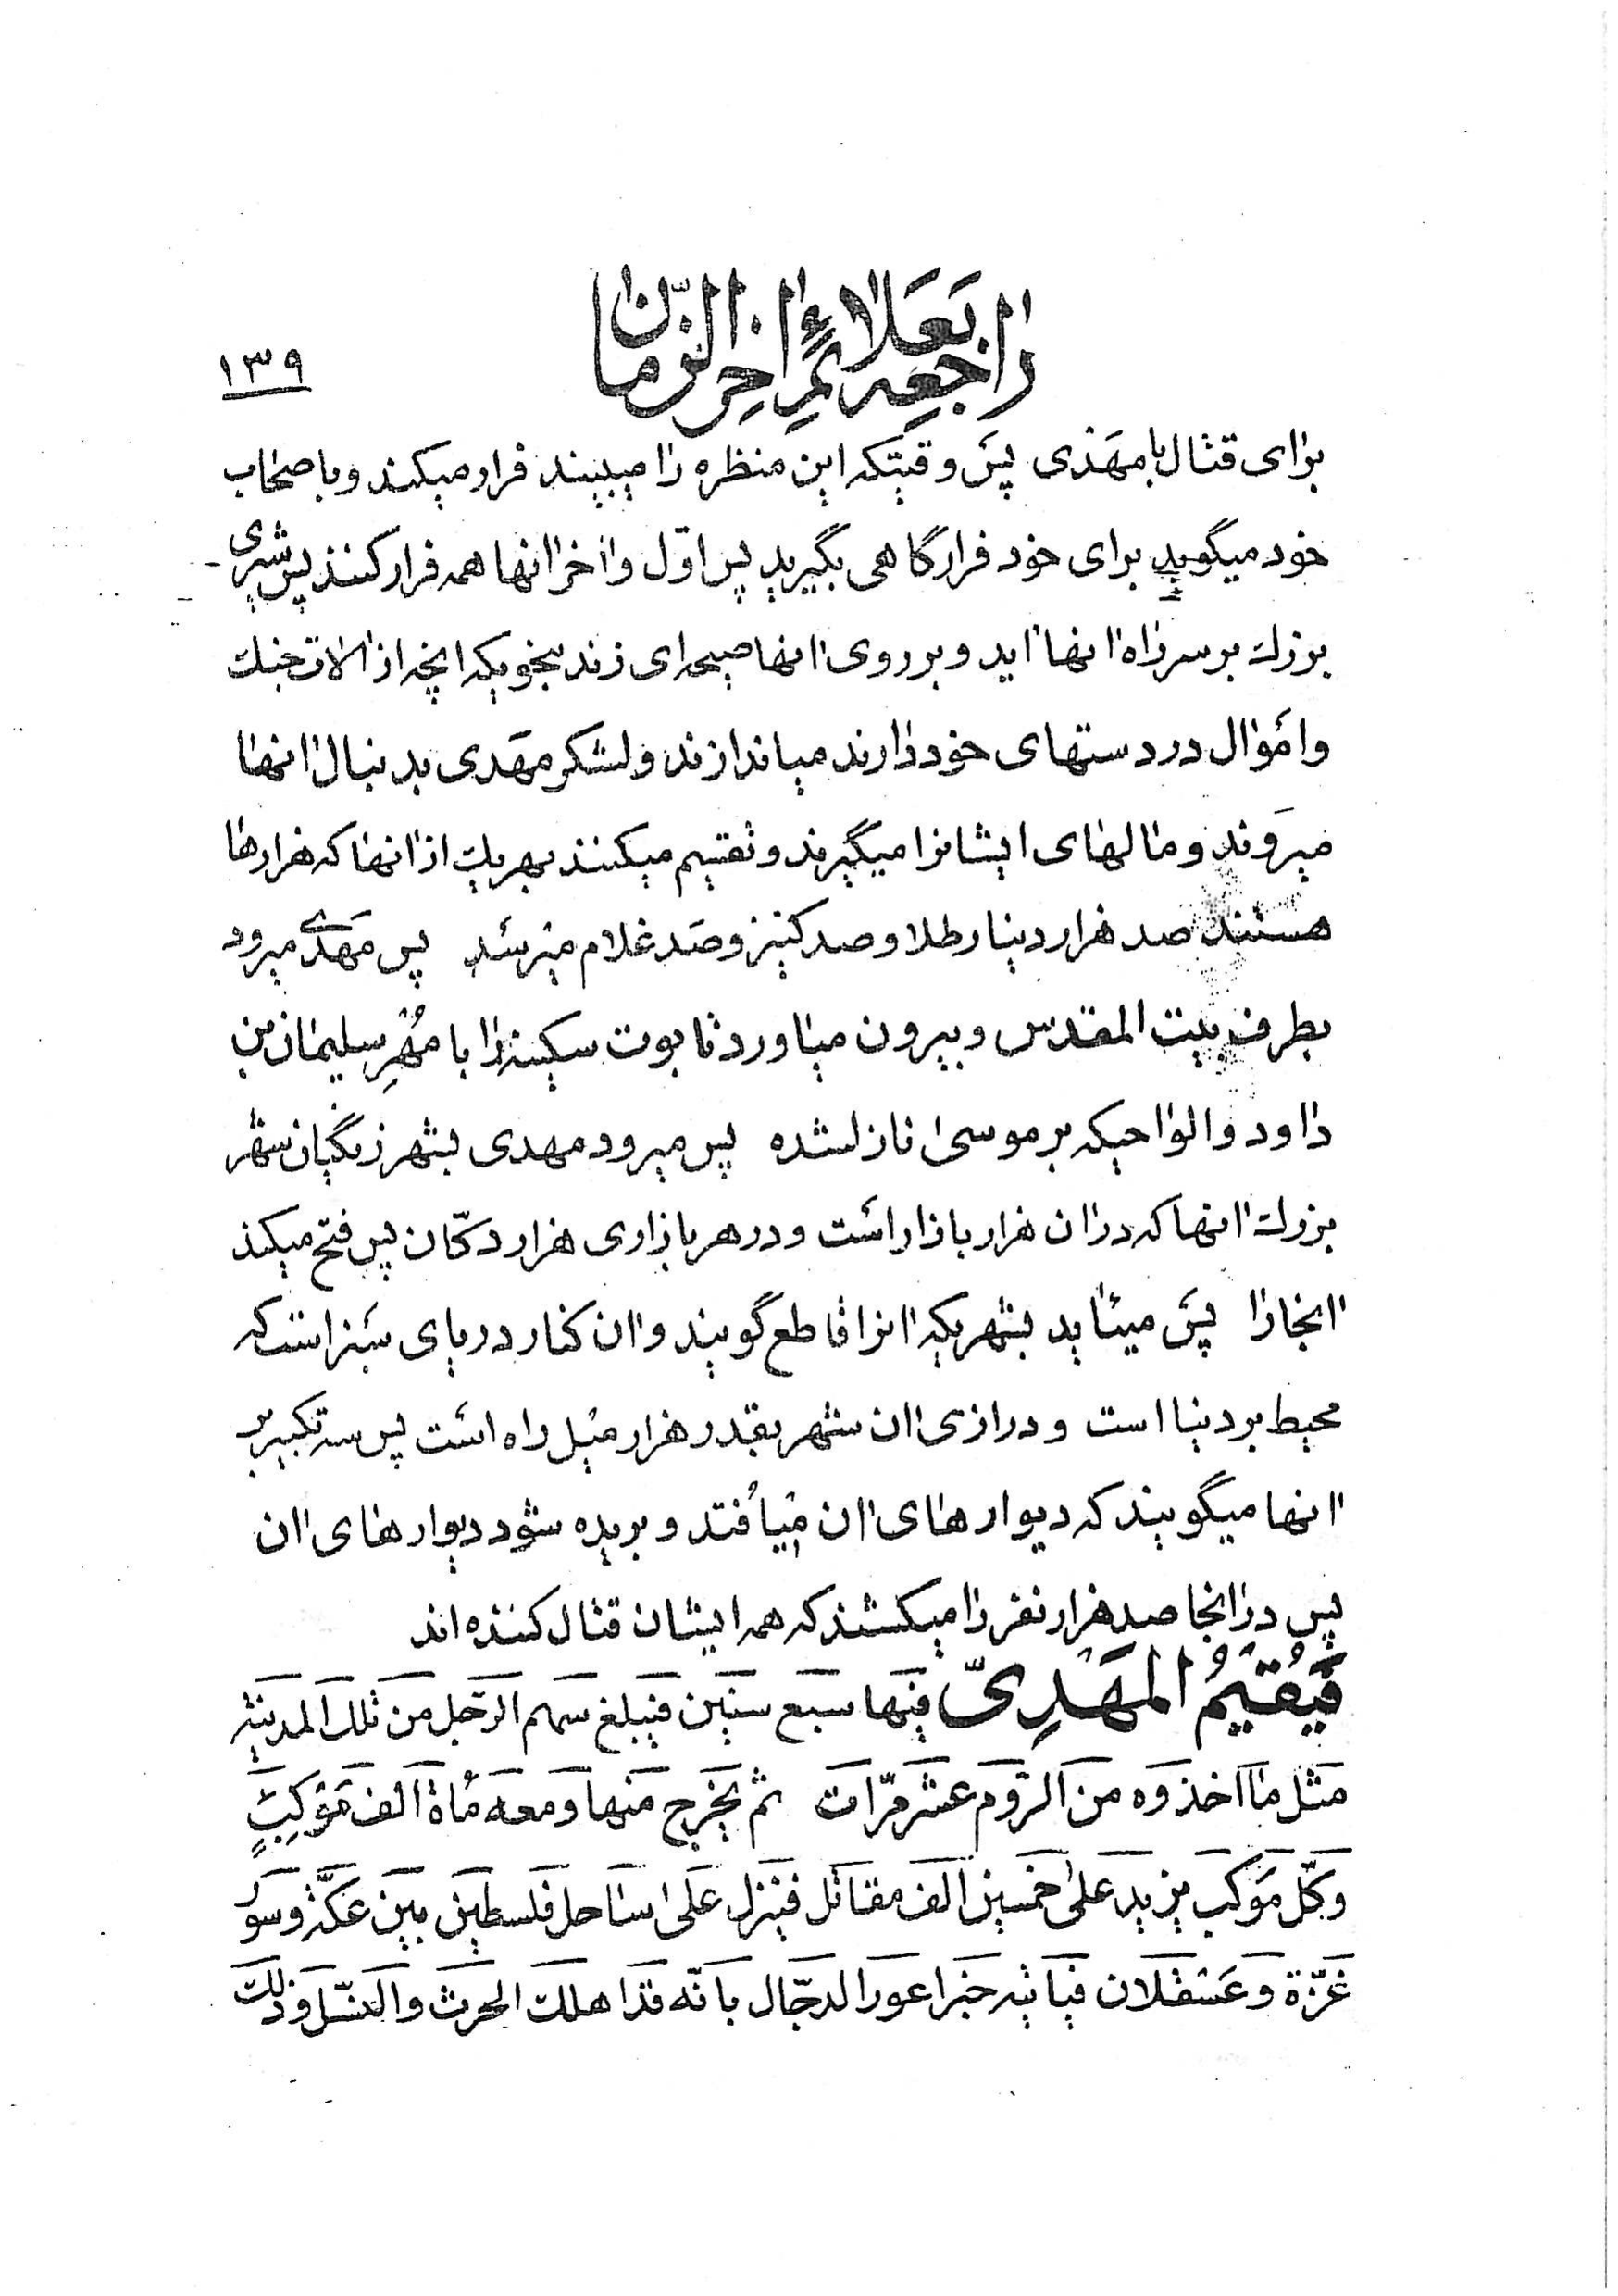 راجعه بعلائم اخر الزّمان
۱۳۹
برای قتال با مهَدی پسَ وقتیکه این منظره را میبیند فرار میکند و باصحاب
خود میگوید برای خود فرارگاهی بگیرید پس اوّل واخرانها همه فرار کنند پس شیری
بزرك بر سر راه انها اید و بر روی انها صیحه ای زند بنحویکه انچه از الات جنك
واموَال در دستهای خود دارند میاندازند ولشکر مهَدی بدنبال انها
میروَند و مالهای ایشانرا میگیرند و تقسیم میکنند بهر یك از انها که هزارها
هستند صد هزار دینار طلا و صد کنیز و صَد غلام میرسَد پس مهَدی میرود
بطرف بیت المقدس و بیرون میاورد تابوت سکینه را با مُهْرِ سلیمان بن
داود و الواحیکه بر موسی نازلشده پس میرود مهدی بشهر زنگیان شهر
بزرك انها که دران هزار بازار اسَت و در هر بازاری هزار دکّان پس فتح میکند
انجارا پسَ میاید بشهریکه انرا قاطع گویند و ان کنار دریای سَبز است که
محیط بر دنیا است و درازی ان شهر بقدر هزار میل راه اسَت پس سه تکبیر بر
انها میگویند که دیوارهای ان میاُفتد و بریده شود دیوارهای ان
پس درانجا صد هزار نفر را میکشند که همه ایشان قتال کننده اند
فَیُقیمُ المَهْدِیّ فیها سبع سنین فیبلغ سهم الرّجل من تلك المدینة
مثل ما اخذوه من الرّوم عشر مرّات ثم یخرج منها و معه مأة الف مَوْکِبٍ
و کلّ موکب یزید علی خمسین الف مقاتل فینزل علی ساحل فلسطین بین عکّة و سور
غزّة و عسقلان فیاتیه خبر اعور الدجّال بانّه قد اهلك الحرث و النسّل و ذلك